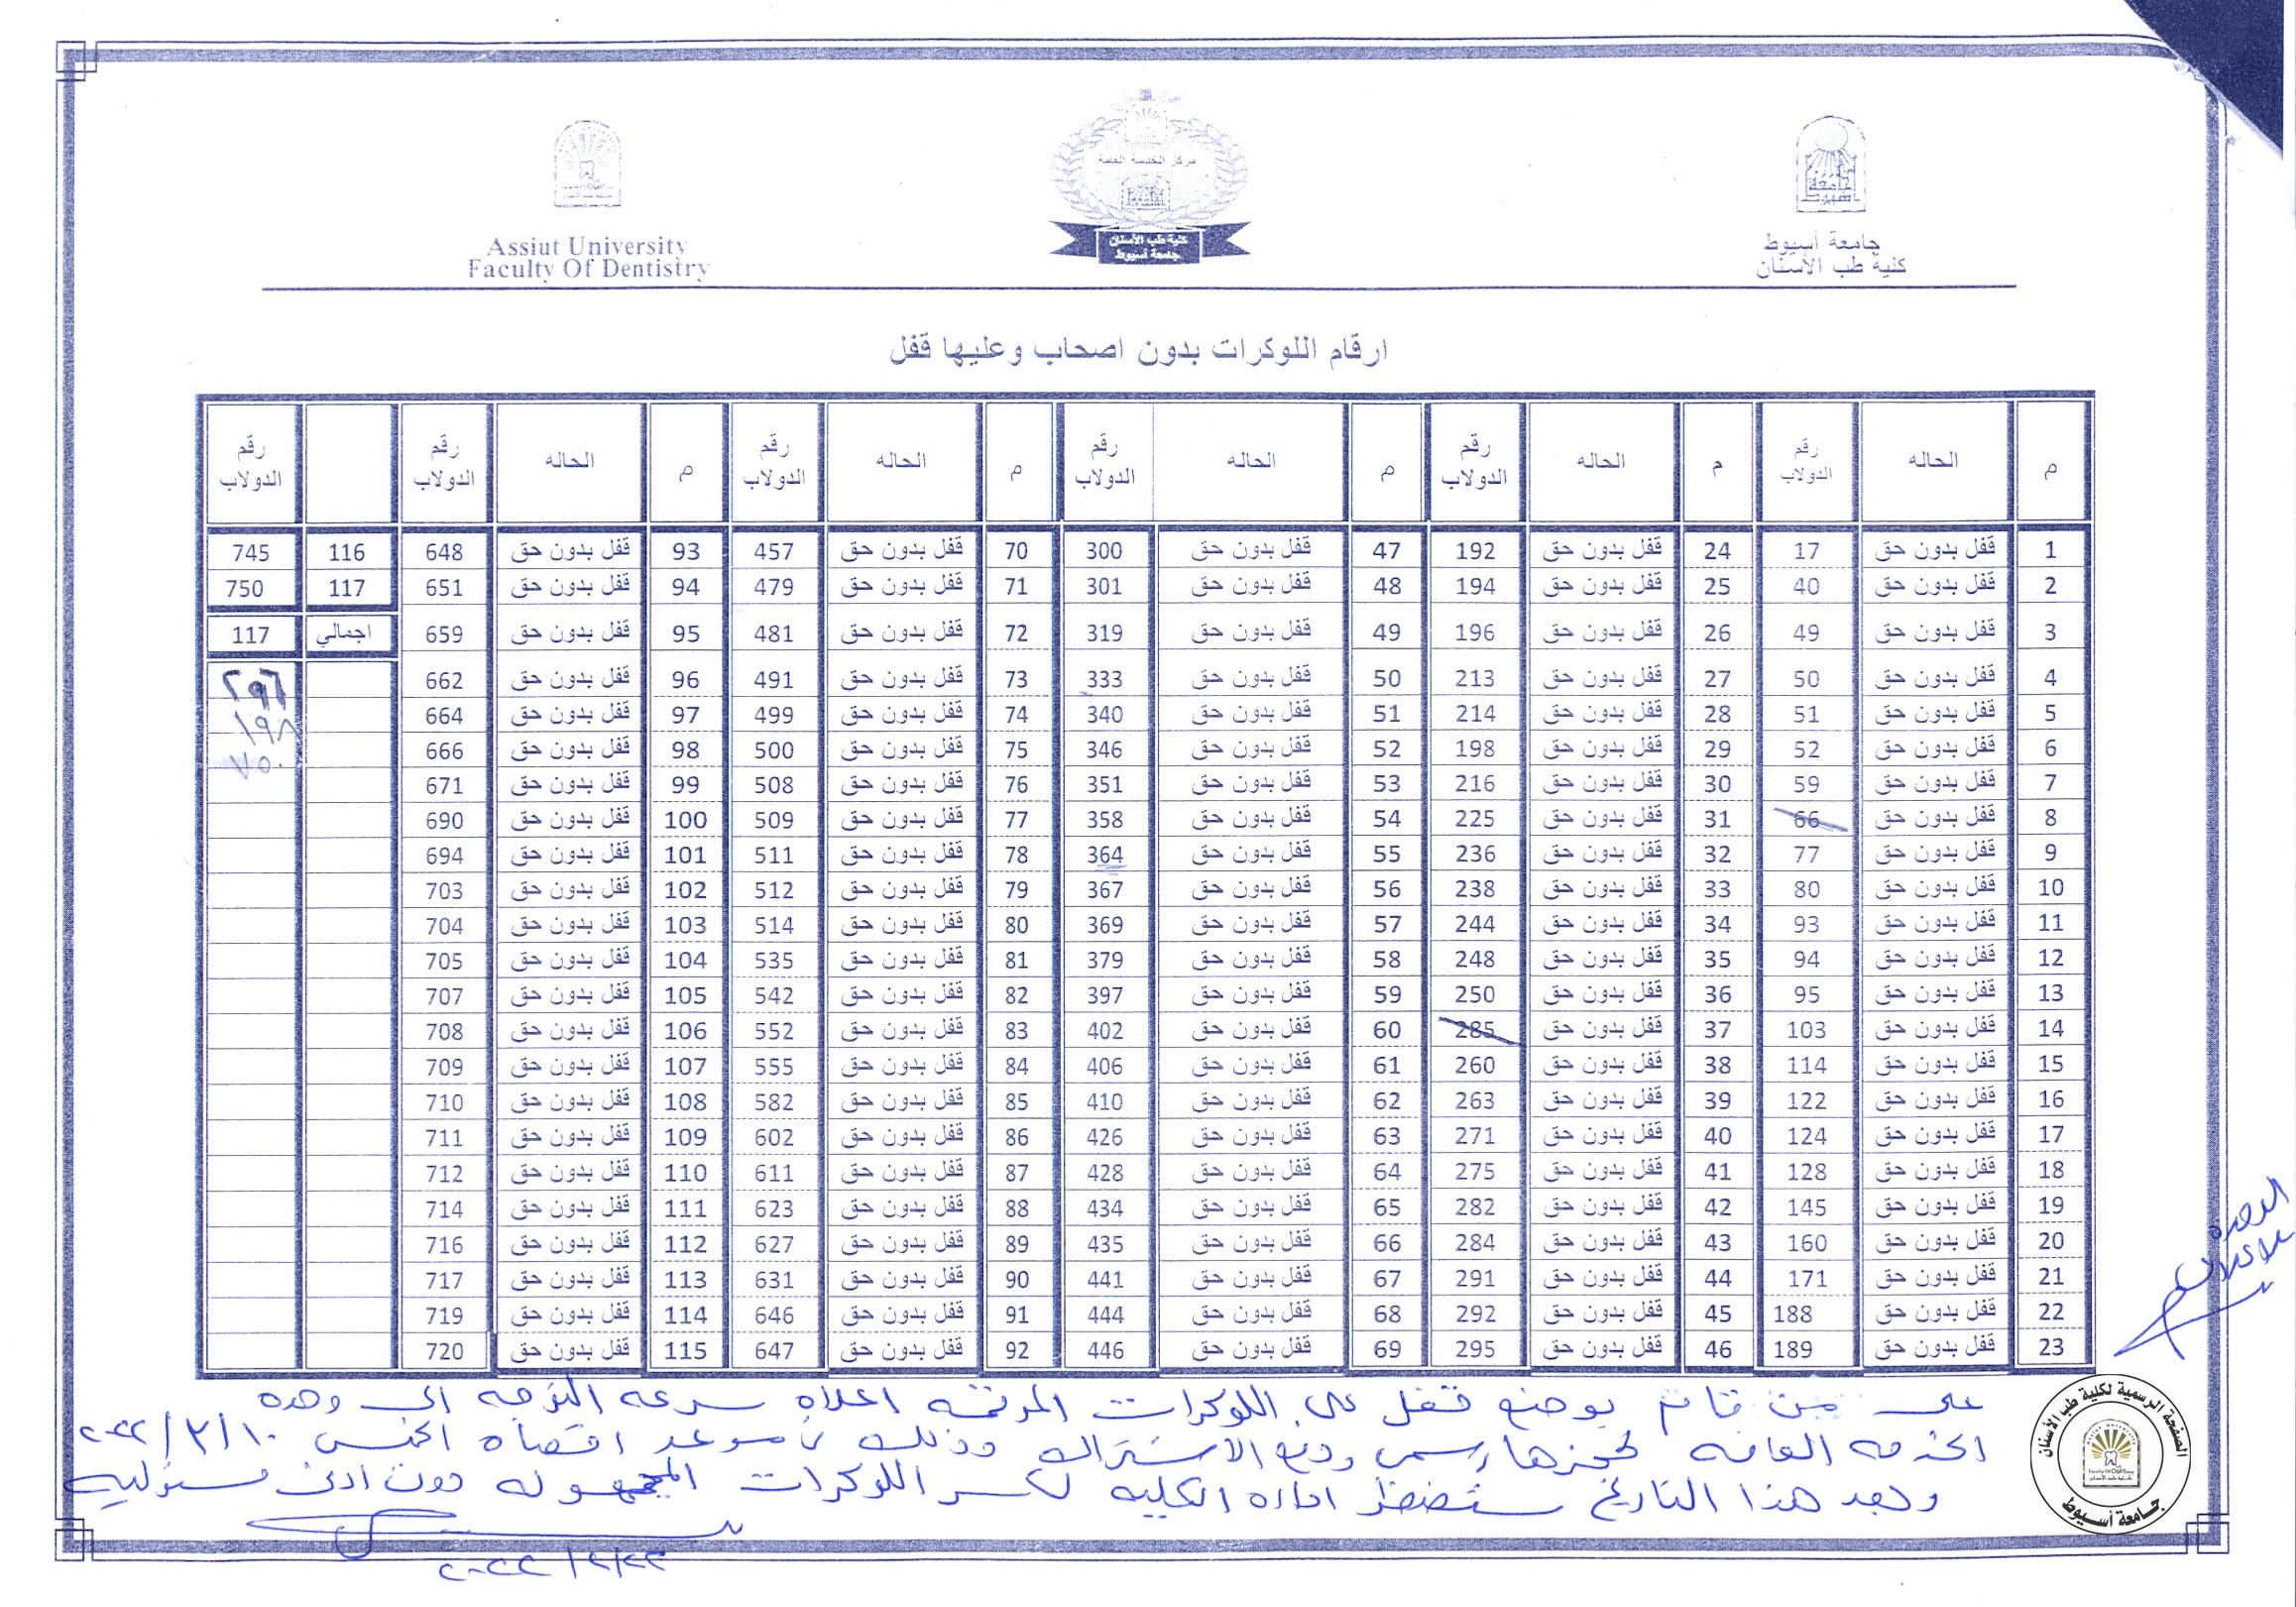 جامعة أسيوط
كلية طب الأسنان
مركز الخدمة العامة
كلية طب الأسنان
جامعة أسيوط
Assiut University
Faculty Of Dentistry
ارقام اللوكرات بدون اصحاب وعليها قفل
م الحاله رقم الدولاب م الحاله رقم الدولاب م الحاله رقم الدولاب م الحاله رقم الدولاب م الحاله رقم الدولاب رقم الدولاب
1 قفل بدون حق 17 24 قفل بدون حق 192 47 قفل بدون حق 300 70 قفل بدون حق 457 93 قفل بدون حق 648 116 745
2 قفل بدون حق 40 25 قفل بدون حق 194 48 قفل بدون حق 301 71 قفل بدون حق 479 94 قفل بدون حق 651 117 750
3 قفل بدون حق 49 26 قفل بدون حق 196 49 قفل بدون حق 319 72 قفل بدون حق 481 95 قفل بدون حق 659 اجمالي 117
4 قفل بدون حق 50 27 قفل بدون حق 213 50 قفل بدون حق 333 73 قفل بدون حق 491 96 قفل بدون حق 662 ٢٩٦
5 قفل بدون حق 51 28 قفل بدون حق 214 51 قفل بدون حق 340 74 قفل بدون حق 499 97 قفل بدون حق 664 ١٩٨
6 قفل بدون حق 52 29 قفل بدون حق 198 52 قفل بدون حق 346 75 قفل بدون حق 500 98 قفل بدون حق 666 ٧٥٠
7 قفل بدون حق 59 30 قفل بدون حق 216 53 قفل بدون حق 351 76 قفل بدون حق 508 99 قفل بدون حق 671
8 قفل بدون حق 66 31 قفل بدون حق 225 54 قفل بدون حق 358 77 قفل بدون حق 509 100 قفل بدون حق 690
9 قفل بدون حق 77 32 قفل بدون حق 236 55 قفل بدون حق 364 78 قفل بدون حق 511 101 قفل بدون حق 694
10 قفل بدون حق 80 33 قفل بدون حق 238 56 قفل بدون حق 367 79 قفل بدون حق 512 102 قفل بدون حق 703
11 قفل بدون حق 93 34 قفل بدون حق 244 57 قفل بدون حق 369 80 قفل بدون حق 514 103 قفل بدون حق 704
12 قفل بدون حق 94 35 قفل بدون حق 248 58 قفل بدون حق 379 81 قفل بدون حق 535 104 قفل بدون حق 705
13 قفل بدون حق 95 36 قفل بدون حق 250 59 قفل بدون حق 397 82 قفل بدون حق 542 105 قفل بدون حق 707
14 قفل بدون حق 103 37 قفل بدون حق 285 60 قفل بدون حق 402 83 قفل بدون حق 552 106 قفل بدون حق 708
15 قفل بدون حق 114 38 قفل بدون حق 260 61 قفل بدون حق 406 84 قفل بدون حق 555 107 قفل بدون حق 709
16 قفل بدون حق 122 39 قفل بدون حق 263 62 قفل بدون حق 410 85 قفل بدون حق 582 108 قفل بدون حق 710
17 قفل بدون حق 124 40 قفل بدون حق 271 63 قفل بدون حق 426 86 قفل بدون حق 602 109 قفل بدون حق 711
18 قفل بدون حق 128 41 قفل بدون حق 275 64 قفل بدون حق 428 87 قفل بدون حق 611 110 قفل بدون حق 712
19 قفل بدون حق 145 42 قفل بدون حق 282 65 قفل بدون حق 434 88 قفل بدون حق 623 111 قفل بدون حق 714
20 قفل بدون حق 160 43 قفل بدون حق 284 66 قفل بدون حق 435 89 قفل بدون حق 627 112 قفل بدون حق 716
21 قفل بدون حق 171 44 قفل بدون حق 291 67 قفل بدون حق 441 90 قفل بدون حق 631 113 قفل بدون حق 717
22 قفل بدون حق 188 45 قفل بدون حق 292 68 قفل بدون حق 444 91 قفل بدون حق 646 114 قفل بدون حق 719
23 قفل بدون حق 189 46 قفل بدون حق 295 69 قفل بدون حق 446 92 قفل بدون حق 647 115 قفل بدون حق 720
على من قام بوضع قفل على اللوكرات المرقمه اعلاه سرعه التوجه الى وحده
الخدمه العامه لحجزها رسمى ودفع الاشتراك وذلك فى موعد اقصاه الخميس ٢٠٢٢/٣/١٠
وبعد هذا التاريخ ستضطر اداره الكليه لكسر اللوكرات المجهوله دون ادنى مسئوليه
٢٠٢٢/٢/٢٣
الصفحة الرسمية لكلية طب الأسنان
جامعة أسيوط